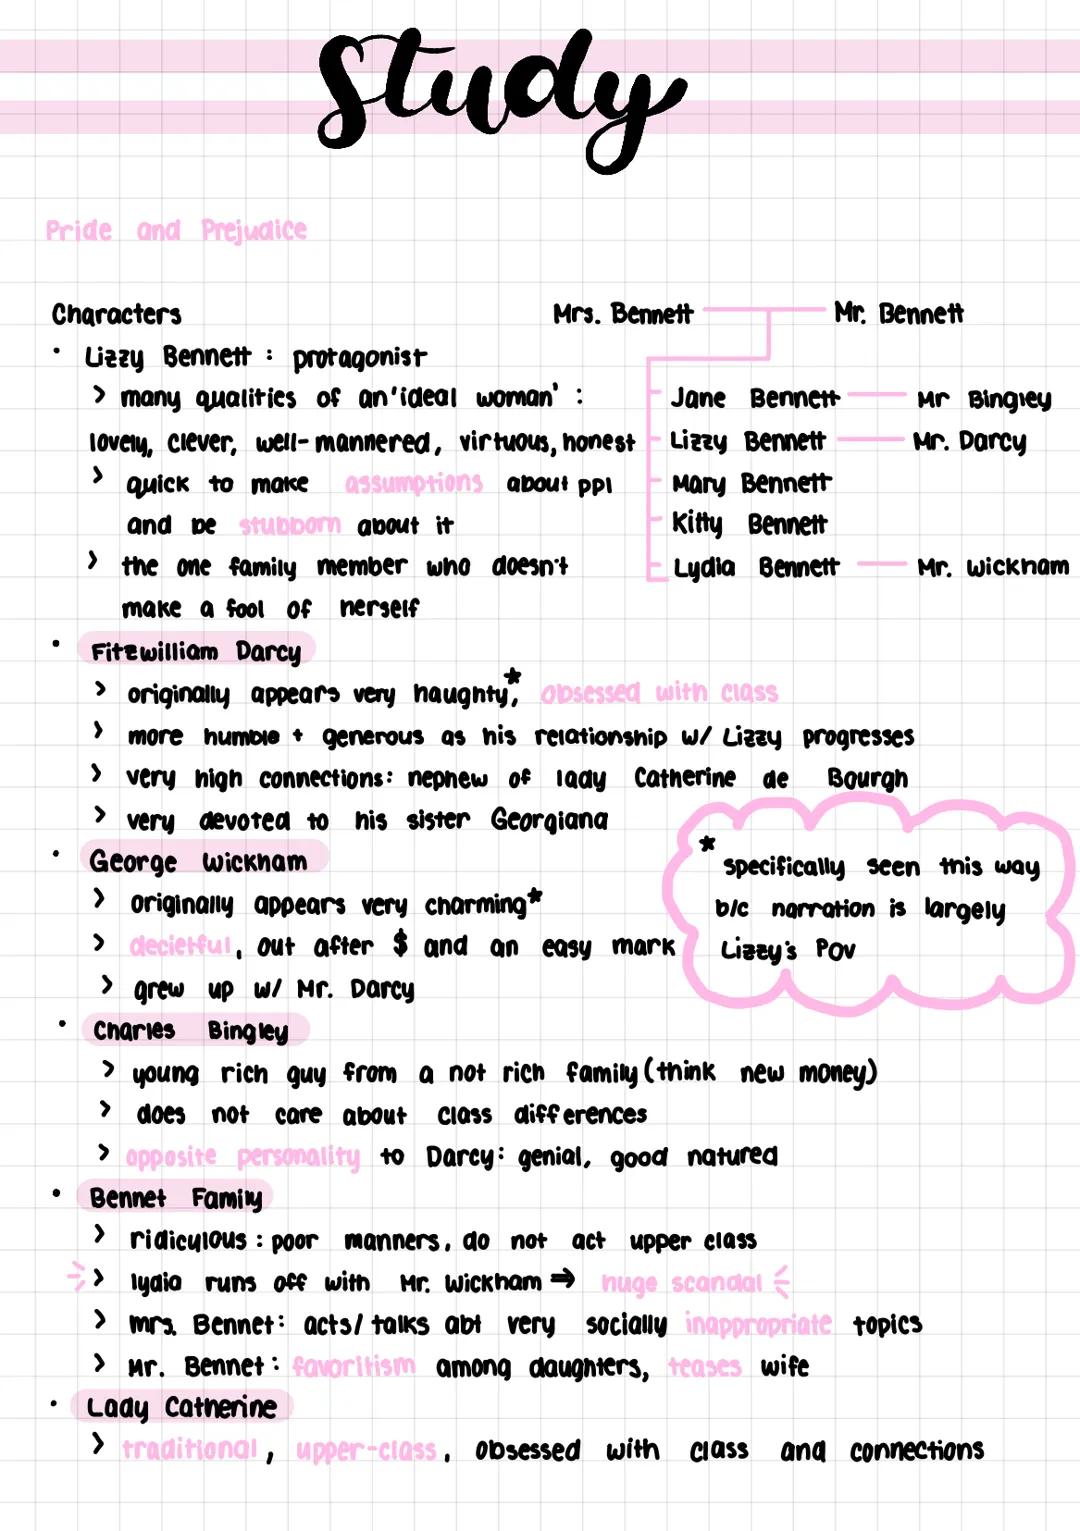 Study
Pride and Prejudice
Characters
Mrs. Bennett
Mr. Bennett
• Lizzy Bennett : protagonist
> many qualities of an 'ideal woman' :
lovely, clever, well-mannered, virtuous, honest
> quick to make assumptions about ppl
and be stubborn about it
> the one family member who doesn't
make a fool of herself
Jane Bennett
Mr Bingley
Lizzy Bennett
Mr. Darcy
Mary Bennett
Kitty Bennett
Lydia Bennett
Mr. Wickham
• Fitzwilliam Darcy
> originally appears very haughty*, obsessed with class
> more humble + generous as his relationship w/ Lizzy progresses
> very high connections: nephew of lady Catherine de Bourgh
> very devoted to his sister Georgiana
• George Wickham
> originally appears very charming*
> decietful, out after $ and an easy mark
> grew up w/ Mr. Darcy
* specifically seen this way
b/c narration is largely
Lizzy's POV
• Charles Bingley
> young rich guy from a not rich family (think new money)
> does not care about class differences
> opposite personality to Darcy: genial, good natured
• Bennet Family
> ridiculous : poor manners, do not act upper class
> lydia runs off with Mr. Wickham ⇒ huge scandal
> mrs. Bennet: acts/talks abt very socially inappropriate topics
> Mr. Bennet: favoritism among daughters, teases wife
• Lady Catherine
> traditional, upper-class, obsessed with class and connections